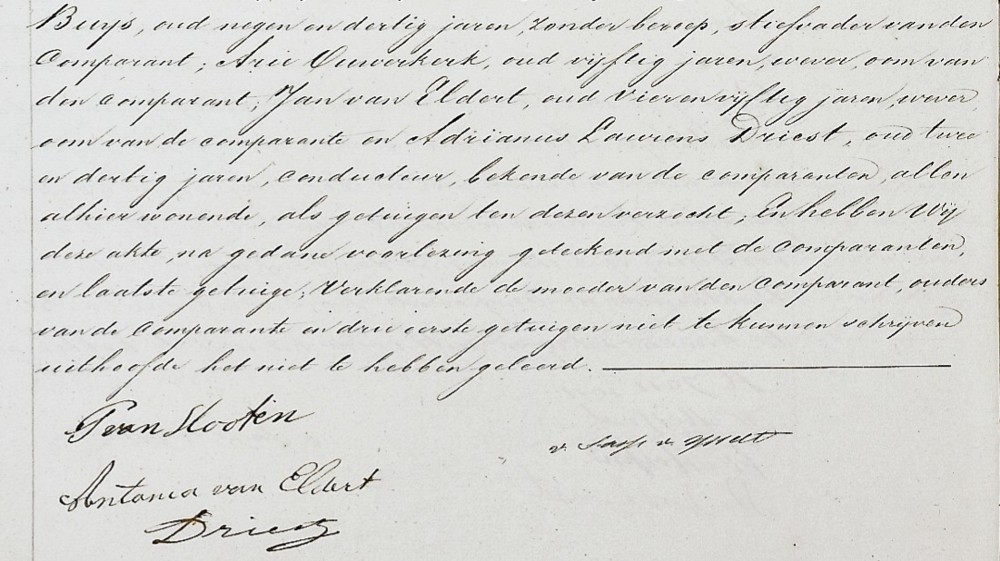 Buijs, oud negen en dertig jaren, zonder beroep, stiefvader van den
Comparant; Arie Ouwerkerk, oud vijftig jaren, wever, oom van
den comparant, Jan van Eldert, oud vier en vijftig jaren, wever
oom van de comparante en Adrianus Laurens Driest, oud twee
en dertig jaren, conducteur, bekende van de comparanten, allen
alhier wonende, als getuigen ten dezen verzocht; En hebben Wij
deze akte na gedane voorlezing geteekend met de Comparanten,
en laatste getuige; Verklarende de moeder van den Comparant, ouders
van de Comparante en drie eerste getuigen niet te kunnen schrijven
uithoofde het niet te hebben geleerd.
P van Slooten
Antonia van Eldert
Driest